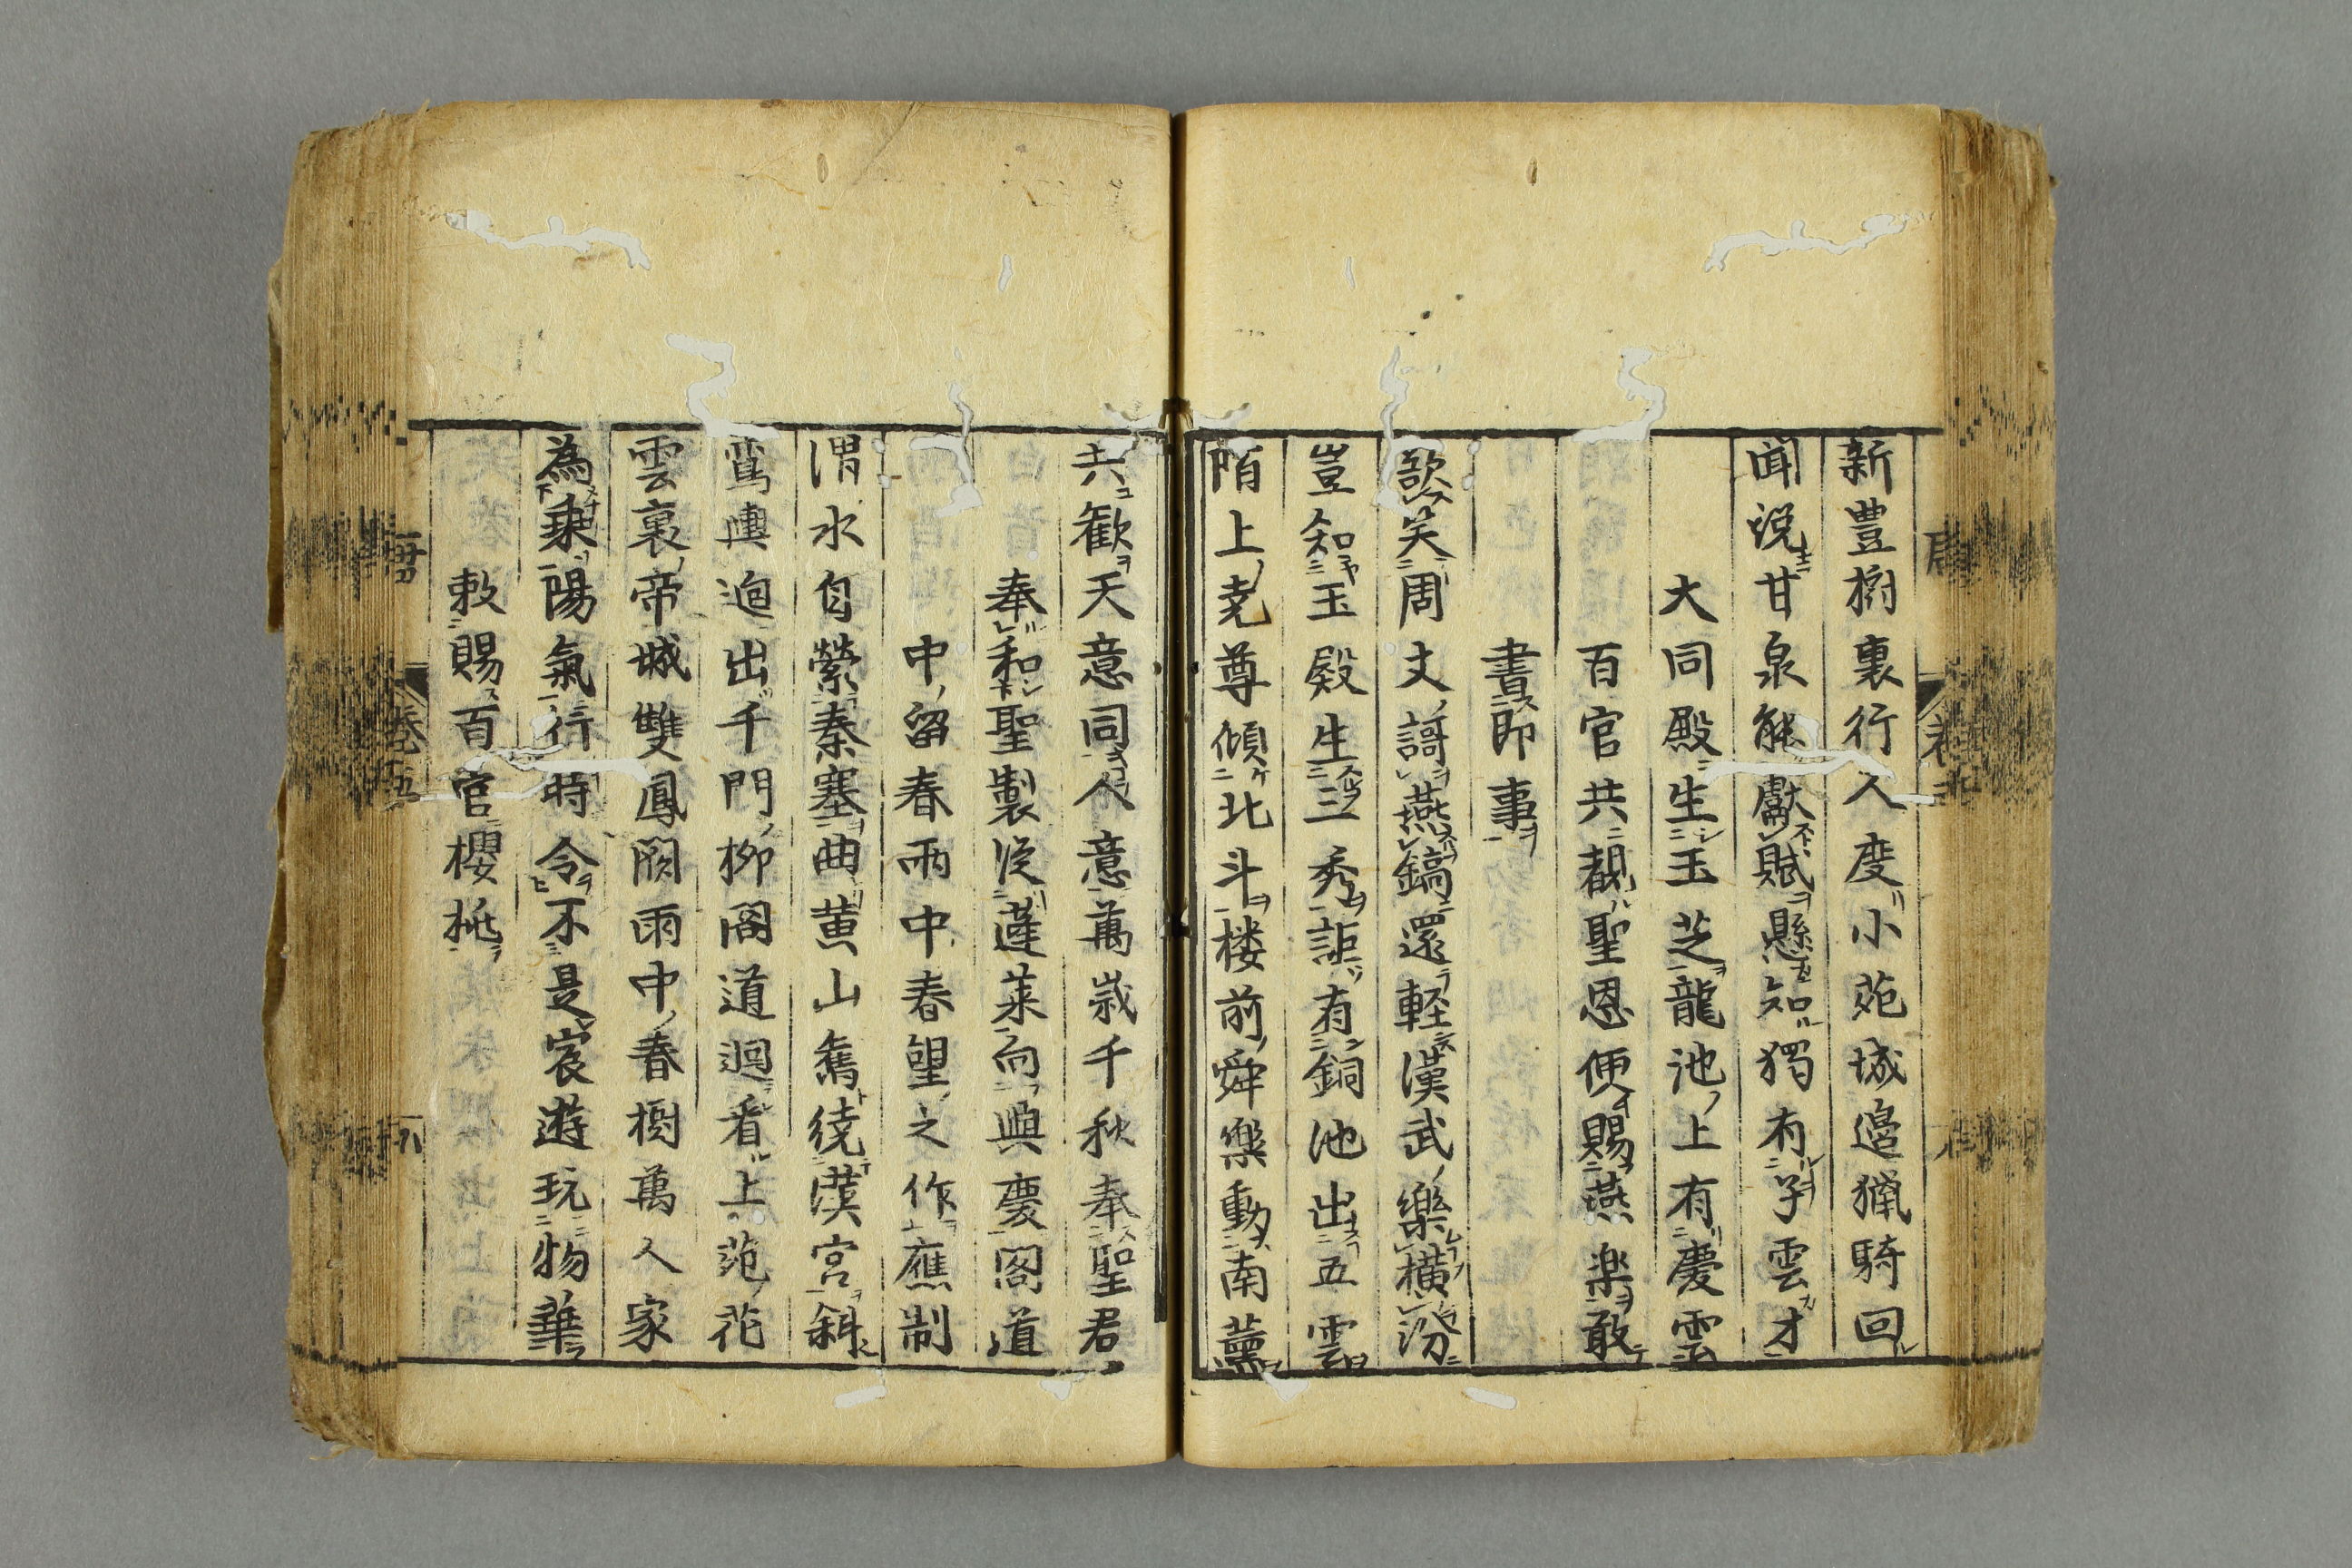 新豊樹裏行人度小苑城邊獵騎回
闻説甘泉能獻賦懸知獨有子雲才
大同殿生玉芝龍池上有慶雲
百官共覩聖恩便賜燕楽敢
書即事
歓笑周文謌燕鎬還軽漢武樂横汾
豈知玉殿生三秀詎有銅池出五雲
陌上尭尊傾北斗楼前舜樂動南薫
共歓天意同人意萬歳千秋奉聖君
奉和聖製従蓬莱向興慶閣道
中留春雨中春望之作應制
渭水自縈秦塞曲黄山舊繞漢宮斜
鸞輿迥出千門柳閣道迴看上苑花
雲裏帝城雙鳳闕雨中春樹萬人家
為乗陽氣行時令不是宸遊玩物華
敕賜百官櫻桃
巻五